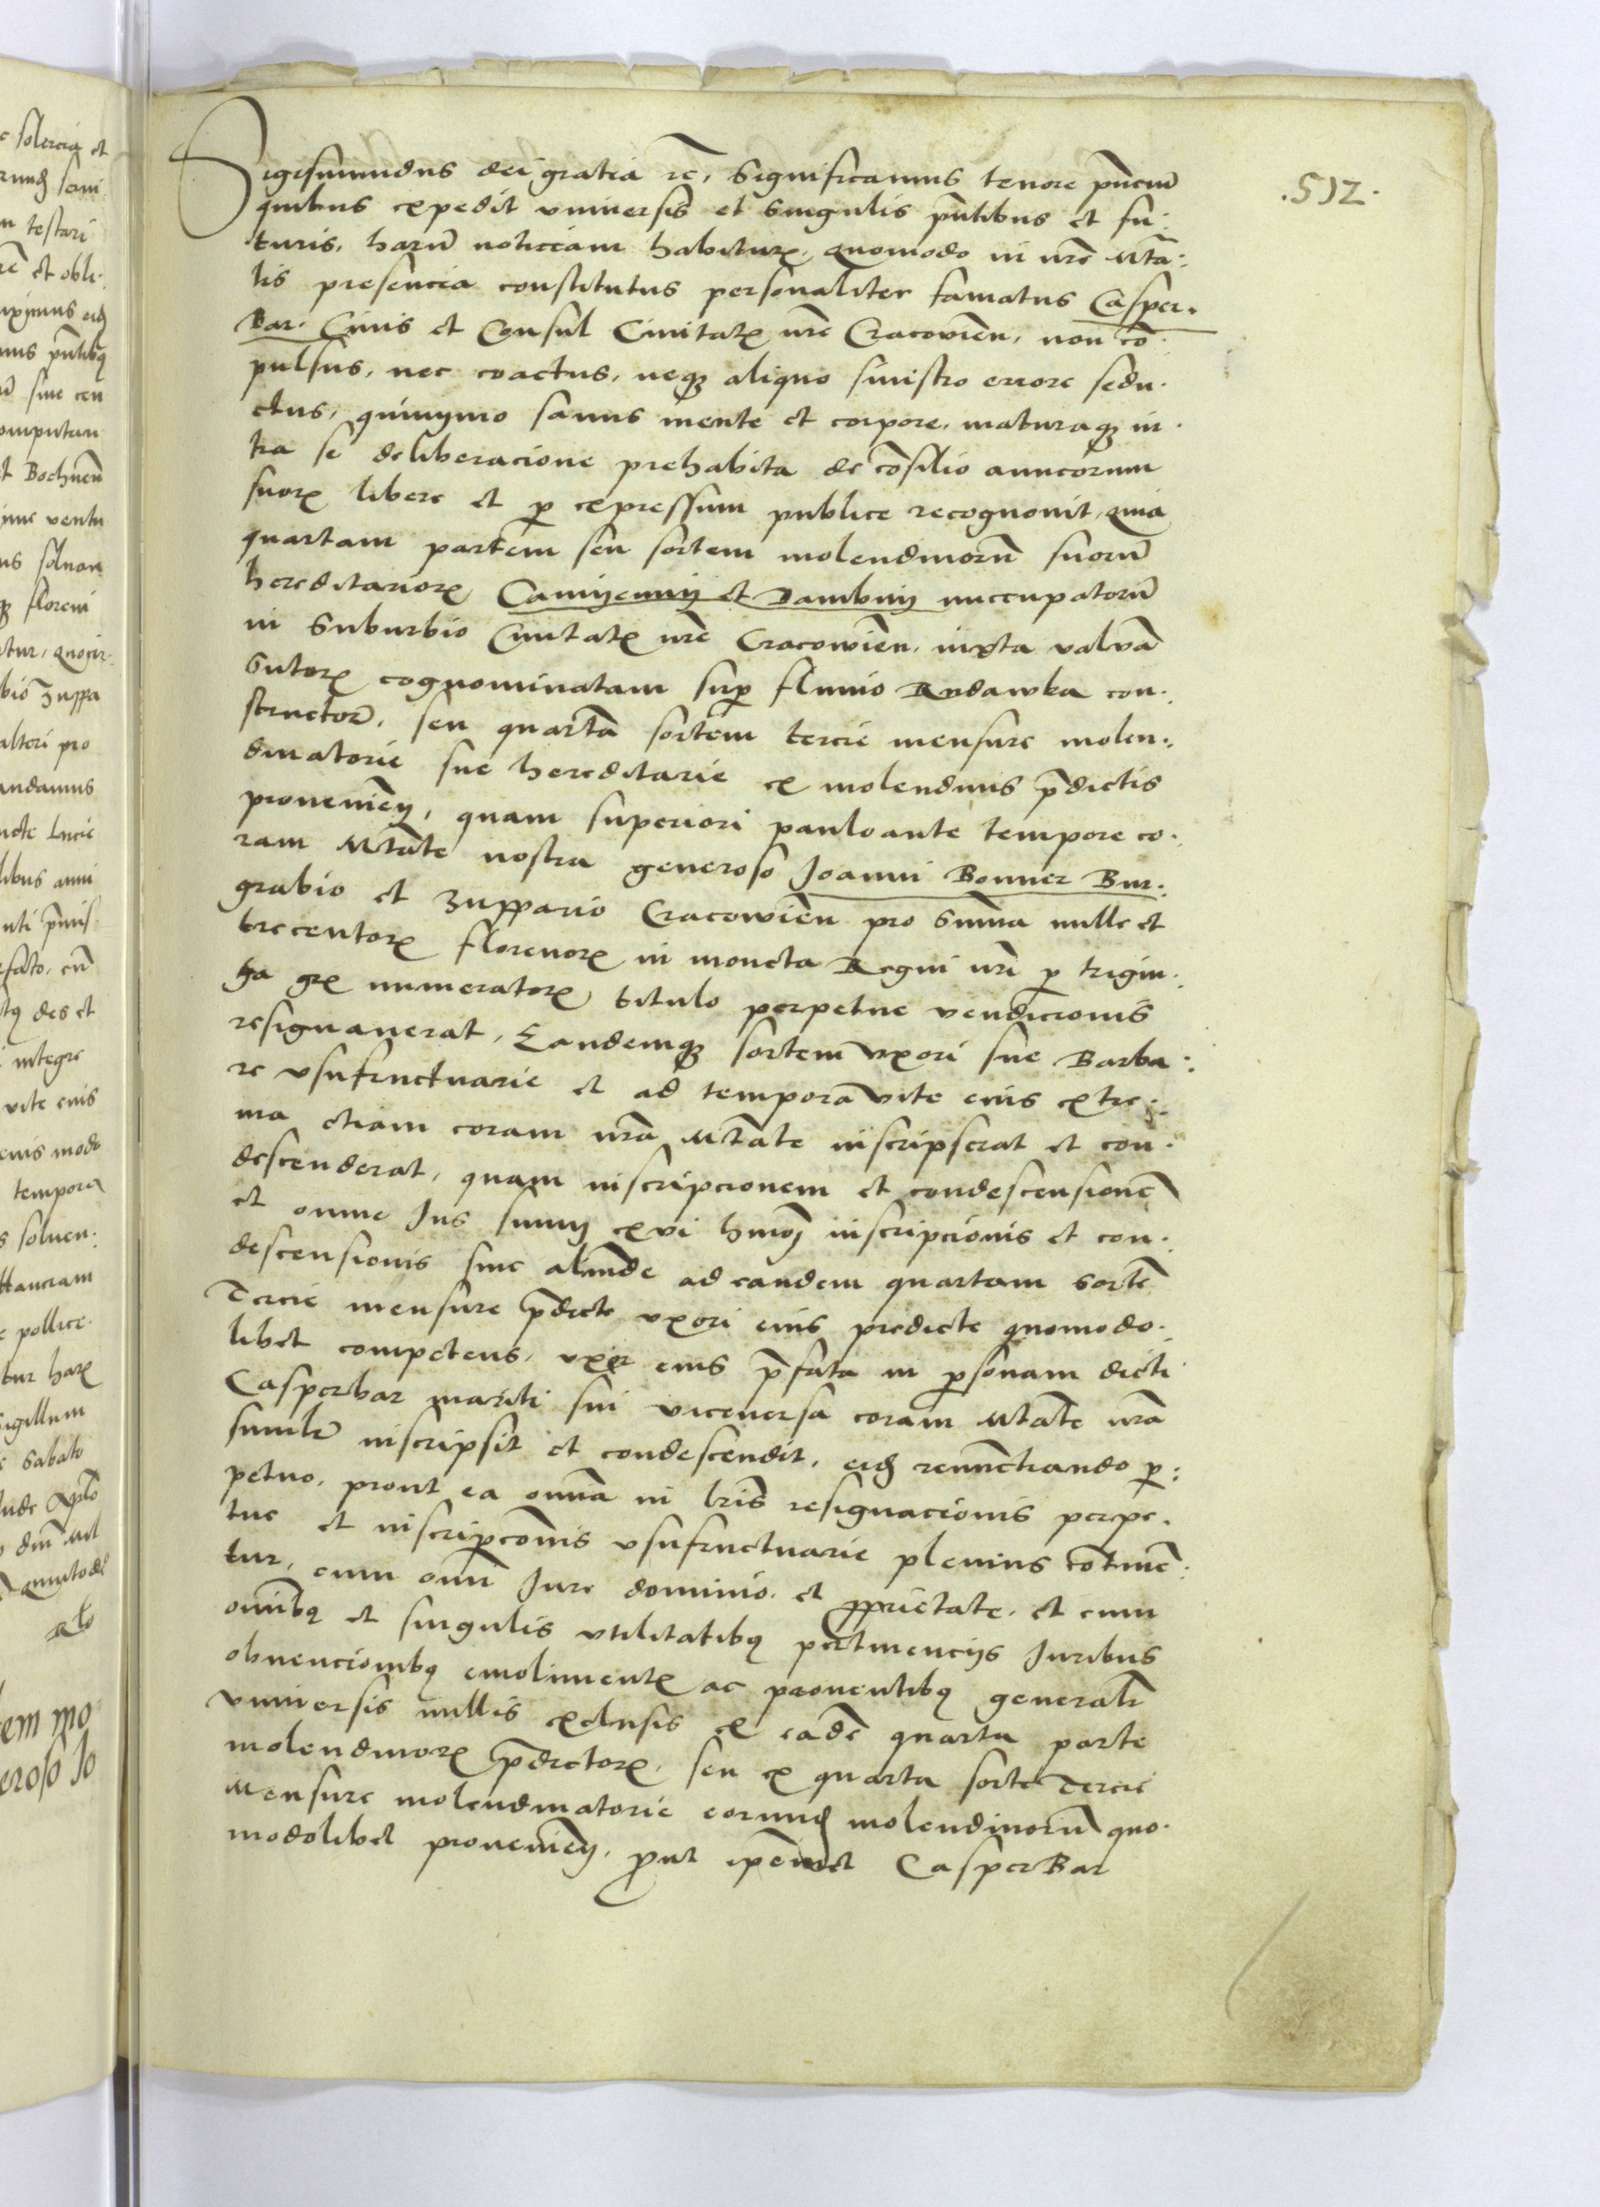 .512.
Sigismundus dei gratia rc̃, Significamus tenore pñcium
quibus expedit vniversis et singulis pñtibus et fu:
turis, harũ noticiam habiturꝝ. quomodo in nrẽ Mtã:
tis presencia constitutus personaliter famatus Casper.
Bar. Civis et Consul Civitatꝭ nrẽ Cracovieñ, non cõ.
pulsus, nec coactus, neqꝫ aliquo sinistro errore sedu.
ctus, quinymo sanus mente et corpore, maturaqꝫ in.
tra se deliberacione prehabita de cõsilio amicorum
suorꝝ libere et ꝑ expressum publice recognovit, quia
quartam partem seu sortem molendinorũ suorũ
hereditariorꝝ Camyenny et Dambny nuccupatorũ
in Suburbio Civitatꝭ nrẽ Cracowieñ, iuxta valvã
Sutorꝝ cognominatam suꝑ fluvio Rudawka con:
structorꝝ, seu quartã sortem tercie mensure molen:
dinatorie sue hereditarie ex molendinis p̃dictis
provenieñ, quam superiori pauloante tempore co.
ram Mtate nostra generoso Joanni Bonner Bur.
grabio et Zuppario Cracowieñ pro Summa mille et
trecentorꝝ florenorꝝ in moneta Regni nrĩ ꝑ trigin.
ta grꝭ numeratorꝝ titulo perpetue vendicionis
resignaverat, Eandemqꝫ sortem vxori sue Barba:
re vsufructuarie et ad tempora vite eius extre:
ma etiam coram nrã Mtate inscripserat et con.
descenderat, quam inscripcionem et condescensionẽ
et omne Jus suum ex vi hmõi inscripcionis et con.
descensionis sive aliunde ad eandem quartam sortẽ
Tercie mensure p̃dicte vxori eius predicte quomodo.
libet competens, vxor eius p̃fata in ꝑsonam dicti
Casperbar mariti sui viceversa coram Mtate nrã
similr̃ inscripsit et condescendit, eidẽ renũctiando ꝑ:
petuo, prout ea omnia in lrĩs resignacionis perpe.
tue et inscripcõnis vsufructuarie plenius cõtinẽ:
tur, cum omni Jure dominio. et ꝓprietate. et cum
omnibꝰ et singulis vtilitatibꝰ pertinencijs Juribus
obvencionibꝰ emolimentꝭ ac proventibꝰ generalr̃
vniversis nullis exclusis ex eadẽ quarta parte
molendinorꝝ p̃dictorꝝ, seu ex quarta sorte Tercie
Mensure molendinatorie eorundẽ molendinorũ quo.
modolibet provenieñ, ꝓut ipẽmet CasperBar